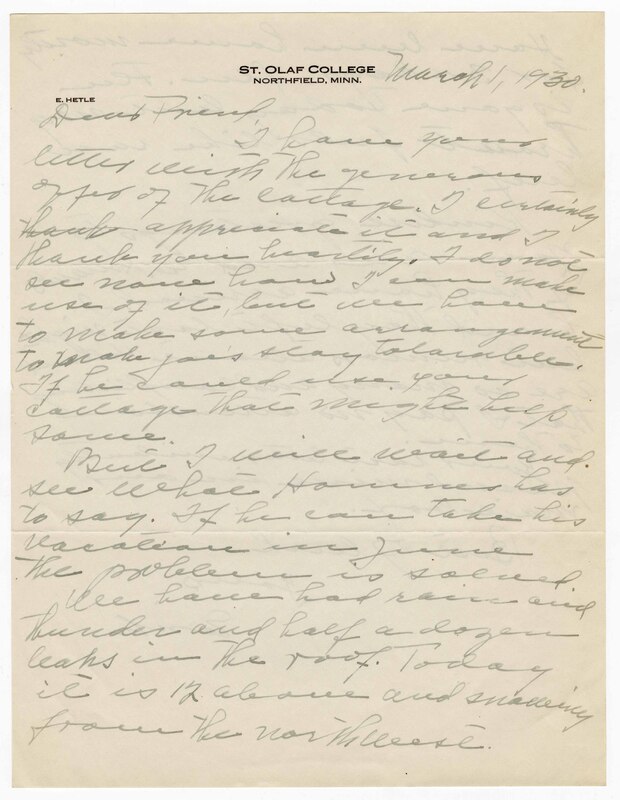 ST. OLAF COLLEGE
NORTHFIELD, MINN.
March 1, 1930.
E. HETLE
Dear Friend
I have your
letter with the generous
offer of the cottage. I certainly
thank appreciate it and I
thank you heartily. I do not
see none how I can make
use of it, but we have
to make some arrangement
to make Joe's stay tolarable.
If he could use your
cottage that might help
some.
But I will wait and
see what Hommes has
to say. If he can take his
vacation in June
the problem is solved
We have had rain and
thunder and half a dozen
leaks in the roof. Today
it is 12 above and snowing
from the northwest.